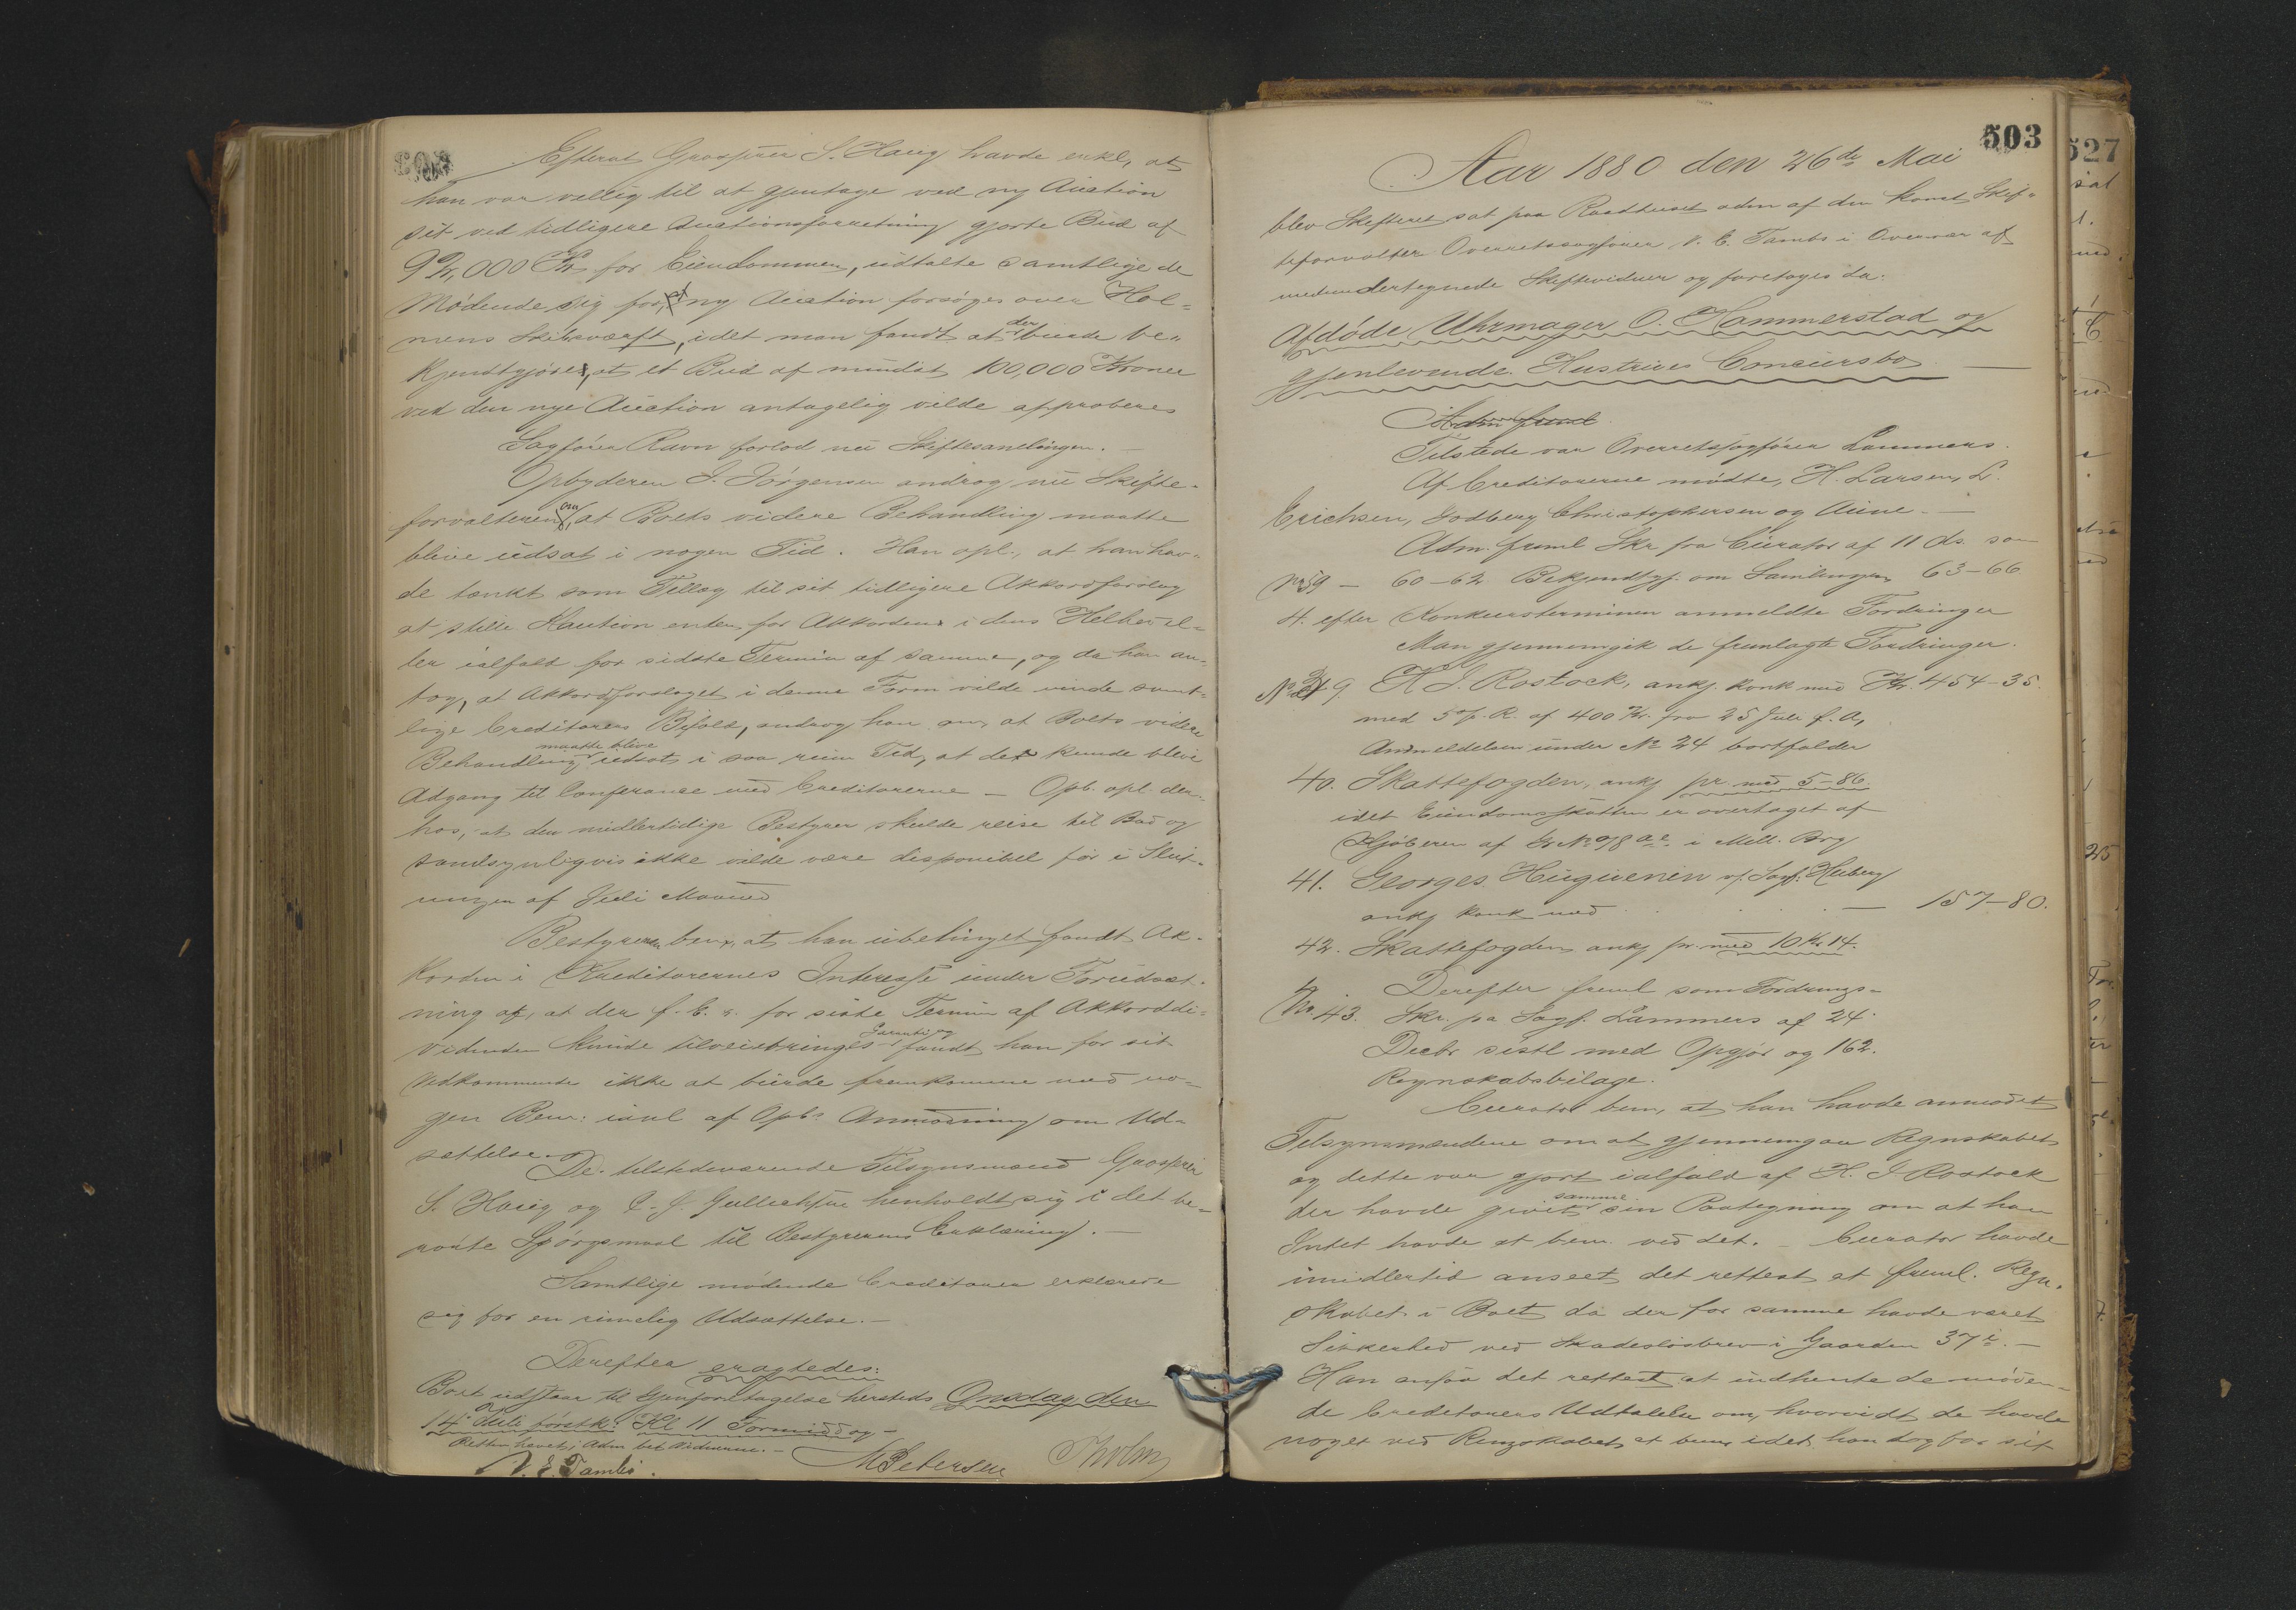 Efterat Grosserer S. Haug havde erkl., at
han var villig til at gjentage ved ny Auction
sit ved tidligere Auctionsforretning gjorte Bud af
92,000 Kr for Eiendommen, udtalte samtlige de
Mødende sig for, at ny Auction forsøges over Hol-
mens Skibsværft, idet man fandt at der burde be-
kjendtgjøres, at et Bud af mindst 100,000 Kroner
ved den nye Auction antagelig vilde approberes
Sagfører Ravn forlod nu Skiftesamlingen. –
Opbyderen J. Jörgensen androg nu Skifte-
forvalteren om, at Boets videre Behandling maatte
blive udsat i nogen Tid. Han opl., at han hav-
de tænkt som Tillæg til sit tidligere Akkordforslag
at stille Kaution enten for Akkorden i dens Helhed el-
ler ialfald for sidste Termin af samme, og da han an-
tog, at Akkordforslaget i denne Form vilde vinde samt-
lige Creditorers Bifald, androg han om, at Boets videre
Behandling maatte blive udsat i saa rum Tid, at det kunde blive
Adgang til Conferance med Creditorerne – Opb. opl. der-
hos, at den midlertidige Bestyrer skulde reise til Bad og
sandsynligvis ikke vilde være disponibel før i Slut-
ningen af Juli Maaned
Bestyreren bem., at han ubetinget fandt Ak-
korden i Kreditorernes Interesse under Forudsæt-
ning af, at der f. E. s. for sidste Termin af Akkorddi-
videnden kunde tilveiebringes Garanti og fandt han for sit
Vedkommende ikke at burde fremkomme med no-
gen Bem: ianl af Opb.s Anmodning om Ud-
sættelse.
De tilstedeværende Tilsynsmænd Grosserer
S. Haug og henholdt sig i det be-
rørte Spørgsmaal til Bestyrerens Erklæring. –
Samtlige mødende Creditorer erklærede
sig for en rimelig Udsættelse. –
Derefter eragtedes:
Boet udstaar til Gjenforetagelse hersteds Onsdag den
14 Juli førstk. Kl 11 Formiddag –
Retten hævet; Adm. bet. Vidnerne. –
N. E. Tambs. M Petersen Tholm
503
Aar 1880 den 26de Mai
blev Skifteret sat paa Raadhuset adm af den konst Skif-
teforvalter Overretssagfører N. E. Tambs i Overvær af
medundertegnede Skiftevidner og foretoges da:
Afdøde Uhrmager O. Hammerstad og
gjenlevende Hustrues Concursbo –
Adm freml
Tilstede var Overretssagfører Lammers.
Af Creditorerne mødte, H. Larsen, L.
Erichsen, Godberg Christophersen og Aune. –
Adm. freml Skr fra Curator af 11 ds. som
No 59 – 60–62 Bekjendtgj. om Samlingen 63–66
4. efter Konkursterminen anmeldte Fordringer
Man gjennemgik de fremlagte Fordringer.
No 39. H J. Rostock, ankj. konk med Kr. 454–35.
med 5 % R. af 400 Kr. fra 25 Juli f. A,
Anmeldelsen under No 24 bortfalder
40. Skattefogden, ankj pr. med 5–86.
idet Eiendomsskatten er overtaget af
Kjøberen af Gr No 98 a.e. i Mell. Brg
41. Georges Huguenin v/ Sagf: Heiberg
ankj konk med – 157–80.
42. Skattefogden ankj pr. med 10 Kr 14.
Derefter freml som Fordrings-
No 43. Skr. fra Sagf. Lammers af 24.
Decbr sistl med Opgjør og 162.
Regnskabsbilage.
Curator bem, at han havde anmodet
Tilsynsmændene om at gjennemgaa Regnskabet
og dette var gjort ialfald af H. J Rostock
der havde givet samme sin Paategning om at han
Intet havde at bem. ved det. – Curator havde
imidlertid anseet det rettest at freml. Regn-
skabet i Boet da der for samme havde været
Sikkerhed ved Skadesløsbrev i Gaarden 37 . –
Han ansaa det rettest at indhente de møden-
de Creditorers Udtalelse om, hvorvidt de havde
noget ved Regnskabet at bem idet han tog for sit
527